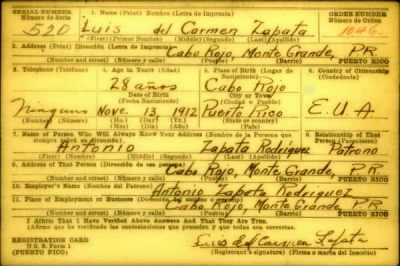 SERIAL NUMBER 1. Name (Print) Nombre (Letra de Imprenta) ORDER NUMBER
Número de Serie Número de Orden
520 Luis del Carmen Zapata 1046.
(First) (Primer Nombre) (Middle) (Segundo) (Last) (Apellido)
2. Address (Print) Dirección (Letra de Imprenta)
Cabo Rojo, Monte Grande, P.R
PUERTO RICO
3. Telephone (Teléfono) 4. Age in Years (Edad) 5. Place of Birth (Lugar de Nacimiento) 6. Country of Citizenship (Ciudadanía)
28 años Cabo Rojo
Date of Birth City or Town
(Fecha Nacimiento) (Ciudad o Pueblo)
Ninguno Nove. 13 1912 Puerto Rico E.U.A
(Mo.) (Mes) (Day) (Día) (Yr.) (Año) (State or country) (País)
7. Name of Person Who Will Always Know Your Address (Nombre de la Persona que siempre sabrá su dirección) 8. Relationship of That Person (Parentesco)
Antonio Zapata Rodriguez Patrono
(First) (Nombre) (Middle) (Segundo) (Last) (Apellido)
9. Address of That Person (Dirección de esa persona)
Cabo Rojo, Monte Grande, P.R
PUERTO RICO
10. Employer's Name (Nombre del Patrono)
Antonio Zapata Rodriguez
11. Place of Employment or Business (Dirección del empleo)
Cabo Rojo, Monte Grande, P.R
PUERTO RICO
I Affirm That I Have Verified Above Answers And That They Are True.
(Afirmo que he verificado las contestaciones que preceden y que son ciertas)
REGISTRATION CARD
Luis del Carmen Zapata
Registrant's signature (Firma o marca del Inscrito)